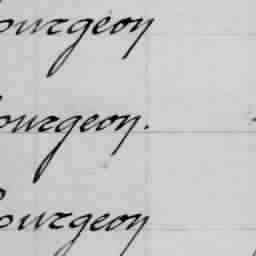 Bourgeon
Bourgeon.
Bourgeon